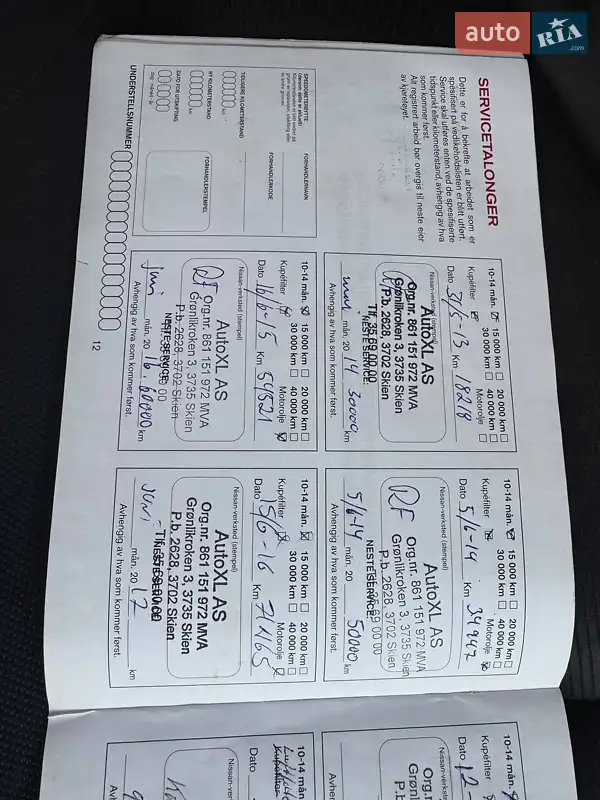 auto RIA
.com
SERVICETALONGER
Dette er for å bekrefte at arbeidet som er
spesifisert på vedlikeholdslisten er blitt utført.
Service skal utføres enten ved de spesifiserte
tidspunkt eller kilometerstand, avhengig av hva
som kommer først.
Alt registrert arbeid bør overgis til neste eier
av kjøretøyet.
SPEEDOMETERBYTTE
TIDLIGERE KILOMETERSTAND
km
NY KILOMETERSTAND
km
DATO FOR UTSKIFTING
Dag - måned - år
FORHANDLERNAVN
FORHANDLERKODE
FORHANDLERSTEMPEL
UNDERSTELLSNUMMER
10-14 mån. 15 000 km 20 000 km
30 000 km 40 000 km
Kupéfilter Motorolje
Dato 3/5-13 Km 18218
Nissan-verksted (stempel)
AutoXL AS
Org.nr. 861 151 972 MVA
Grønlikroken 3, 3735 Skien
P.b. 2628, 3702 Skien
Tlf. 35 69 00 00
NESTE SERVICE:
mån. 20 14 30000 km
Avhengig av hva som kommer først.
10-14 mån. 15 000 km 20 000 km
30 000 km 40 000 km
Kupéfilter Motorolje
Dato 5/6-14 Km 34947
Nissan-verksted (stempel)
RF
AutoXL AS
Org.nr. 861 151 972 MVA
Grønlikroken 3, 3735 Skien
P.b. 2628, 3702 Skien
NESTE SERVICE:
5/6-14 mån. 20 50000 km
Avhengig av hva som kommer først.
10-14 mån. 15 000 km 20 000 km
30 000 km 40 000 km
Kupéfilter Motorolje
Dato 16/6-15 Km 54521
Nissan-verksted (stempel)
RF
AutoXL AS
Org.nr. 861 151 972 MVA
Grønlikroken 3, 3735 Skien
P.b. 2628, 3702 Skien
NESTE SERVICE:
Jun mån. 20 16. 60000 km
Avhengig av hva som kommer først.
10-14 mån. 15 000 km 20 000 km
30 000 km 40 000 km
Kupéfilter Motorolje
Dato 15/6-16 Km 74165
Nissan-verksted (stempel)
AutoXL AS
Org.nr. 861 151 972 MVA
Grønlikroken 3, 3735 Skien
P.b. 2628, 3702 Skien
NESTE SERVICE:
Juni mån. 20 17 km
Avhengig av hva som kommer først.
12
10-14 mån.
Kupéfilter
Dato 12-
Nissan-verksted
Org.n
Grønli
P.b.
10-14 mån.
Dato
Nissan-verk